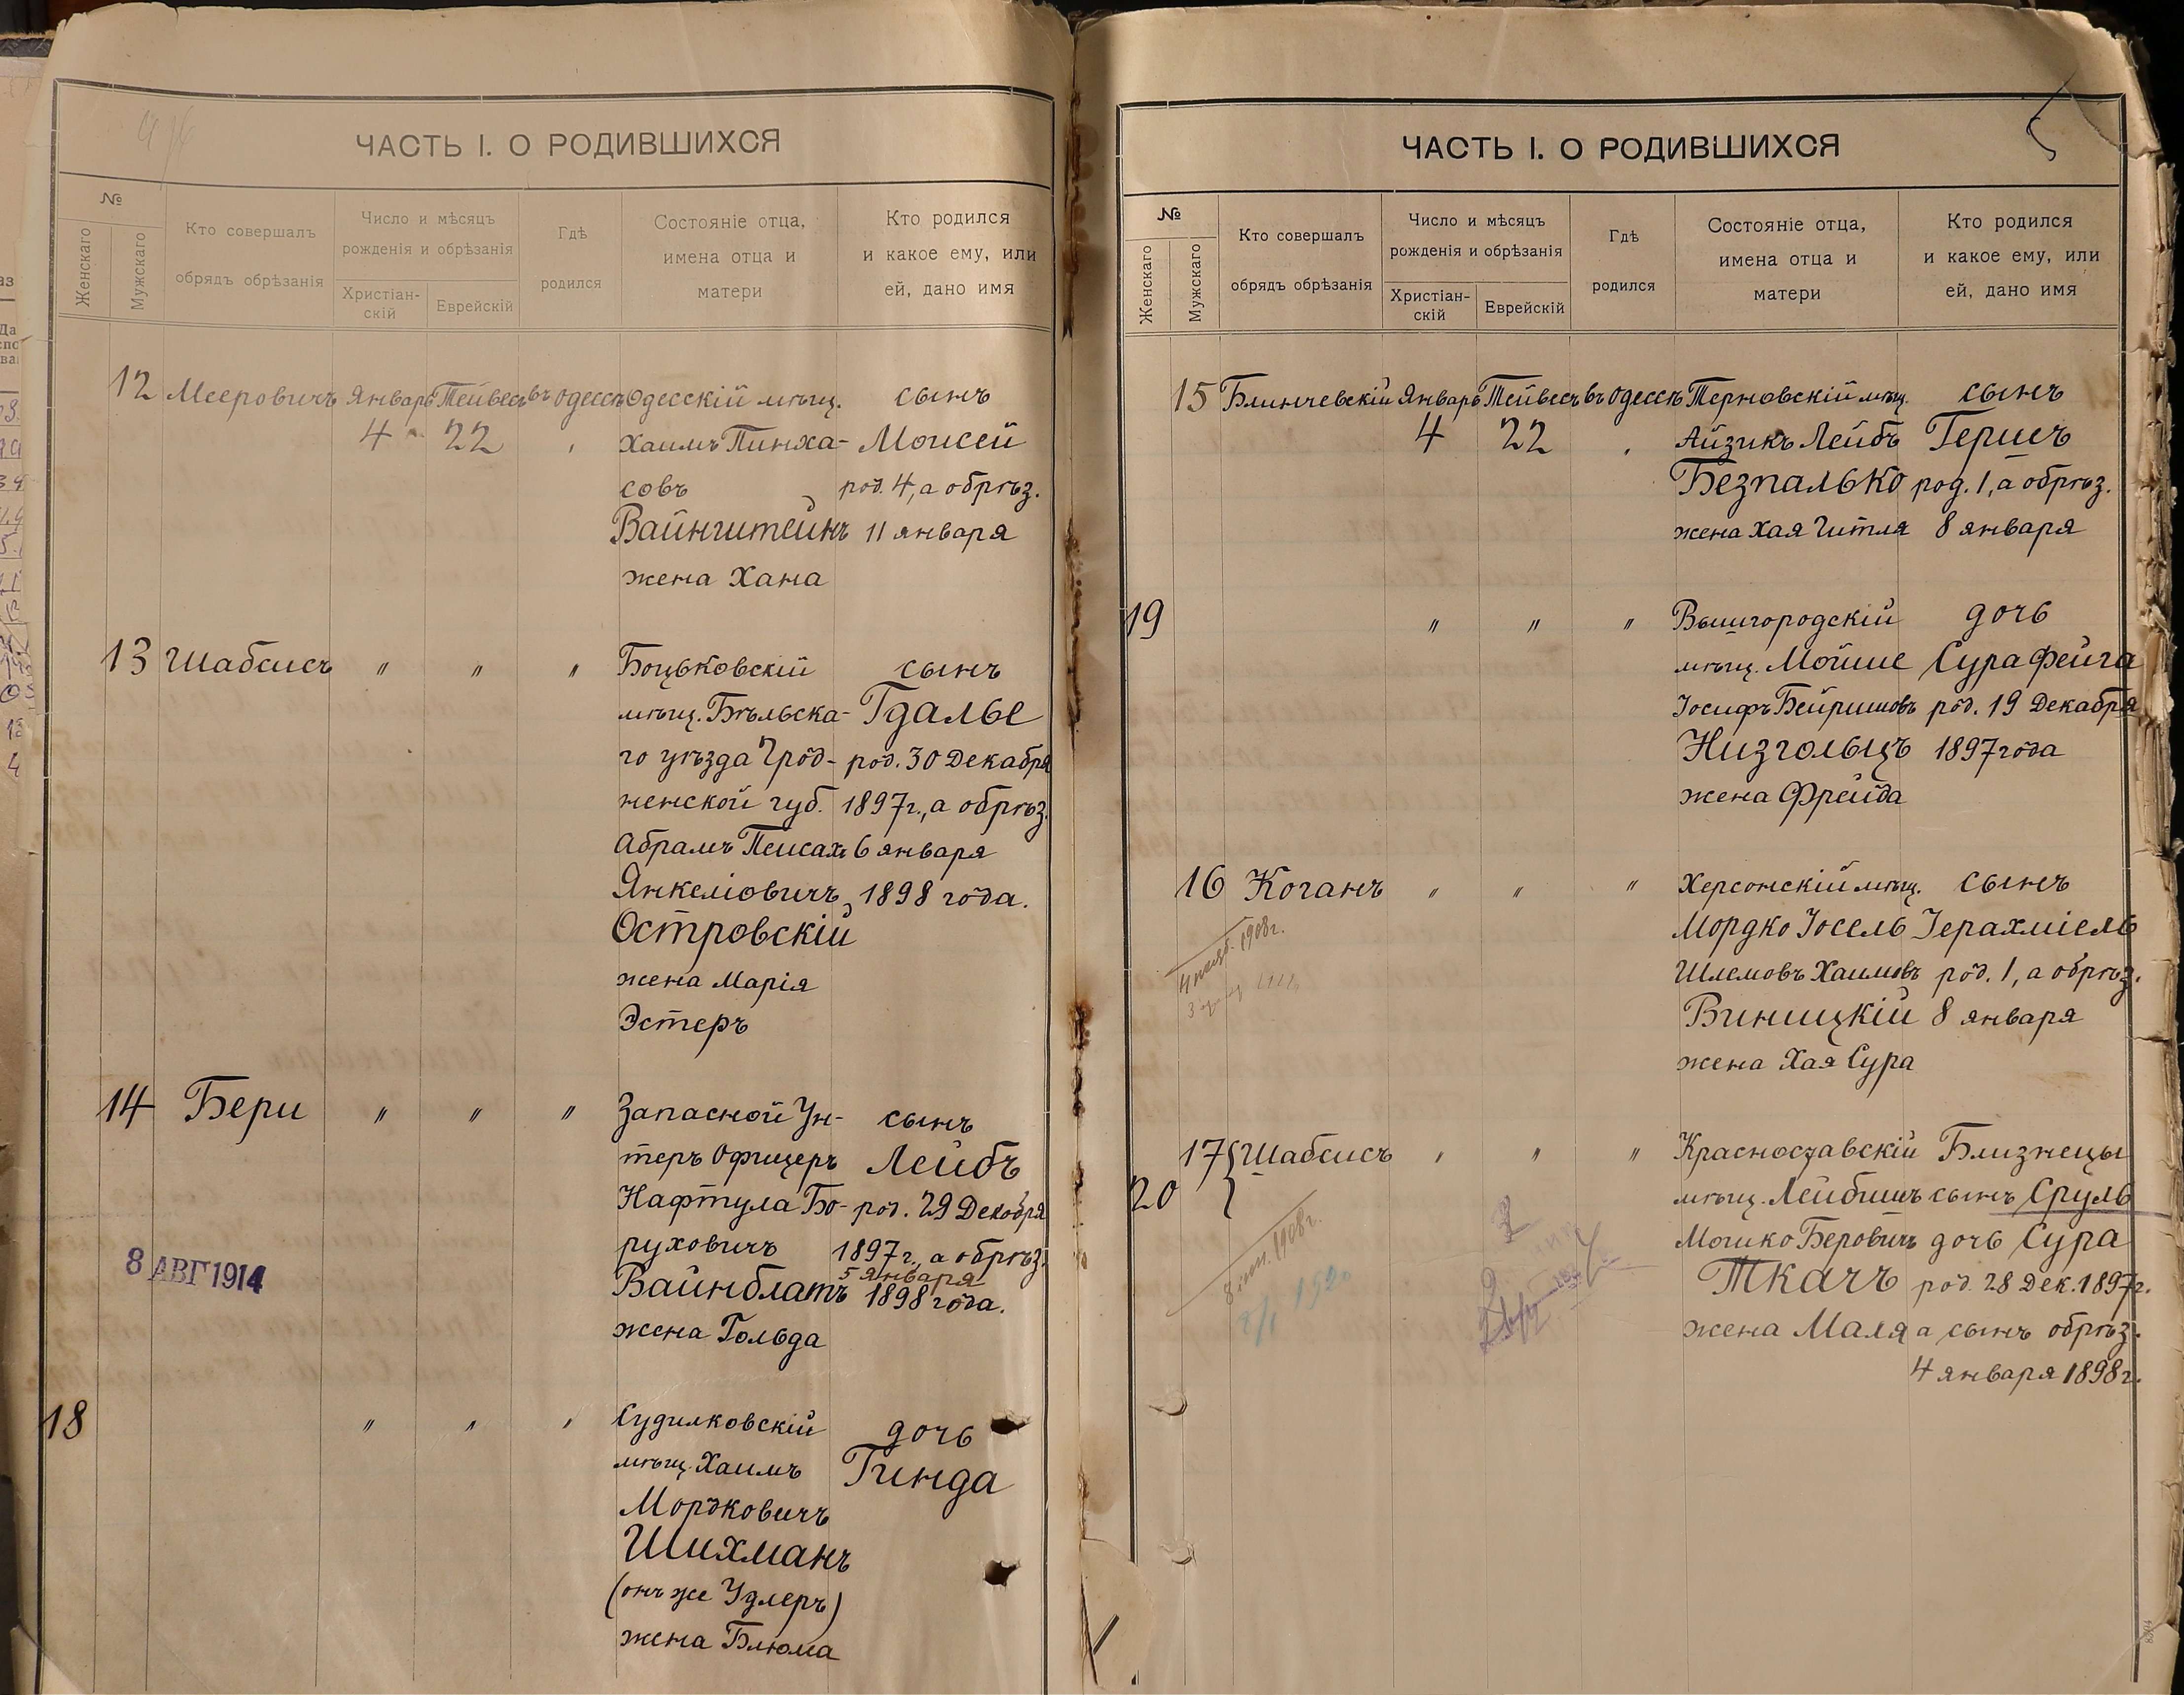 ЧАСТЬ I. О РОДИВШИХСЯ
№
Женскаго
Мужскаго
Кто совершалъ
обрядъ обрѣзанія
Число и мѣсяцъ
рожденія и обрѣзанія
Христіан-
скій
Еврейскій
Гдѣ
родился
Состояніе отца,
имена отца и
матери
Кто родился
и какое ему, или
ей, дано имя
12 Мееровичъ Январь Тейвесъ въ Одессѣ Одесскій мѣщ. сынъ
4 22 " Хаимъ Пинха- Моисей
совъ род. 4, а обрѣз.
Вайнштейнъ 11 января
жена Хана
13 Шабсисъ " " " Боцьковскій сынъ
мѣщ. Бѣльска- Гдалье
го уѣзда Грод- род. 30 Декабря
ненской губ. 1897 г., а обрѣз.
Абрамъ Пейсахъ 6 января
Янкеліовичъ 1898 года.
Островскій
жена Марія
Эстеръ
14 Бери " " " Запасной Ун- сынъ
теръ Офицеръ Лейбъ
Нафтула Бо- род. 29 Декабря
руховичъ 1897 г., а обрѣз.
5 января
Вайнблатъ 1898 года.
жена Гольда
8 АВГ 1914
18 " " " Судилковскій дочь
мѣщ. Хаимъ Гинда
Мордковичъ
Шихманъ
(онъ же Удлеръ)
жена Блюма
ЧАСТЬ I. О РОДИВШИХСЯ
5
№
Женскаго
Мужскаго
Кто совершалъ
обрядъ обрѣзанія
Число и мѣсяцъ
рожденія и обрѣзанія
Христіан-
скій
Еврейскій
Гдѣ
родился
Состояніе отца,
имена отца и
матери
Кто родился
и какое ему, или
ей, дано имя
15 Блинчевскій Январь Тейвесъ въ Одессѣ Терновскій мѣщ. сынъ
4 22 " Айзикъ Лейбъ Гершъ
Безпалько род. 1, а обрѣз.
жена Хая Гитля 8 января
19 " " " Вышгородскій дочь
мѣщ. Мойше Сура Фейга
Іосифъ Бейришовъ род. 19 Декабря
Низгольцъ 1897 года
жена Фрейда
16 Коганъ " " " Херсонскій мѣщ. сынъ
Мордко Іосель Іерахміель
Шлемовъ Хаимовъ род. 1, а обрѣз.
Виницкій 8 января
жена Хая Сура
1908 г.
17 { Шабсисъ " " " Красноставскій Близнецы
20 мѣщ. Лейбишъ сынъ Сруль
Мошко Беровичъ дочь Сура
Ткачъ род. 28 Дек. 1897 г.
жена Маля а сынъ обрѣз.
4 января 1898 г.
1908 г.